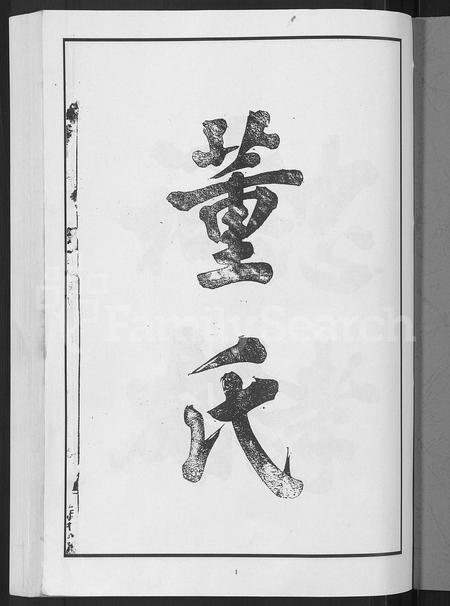 董
氏
FamilySearch
1